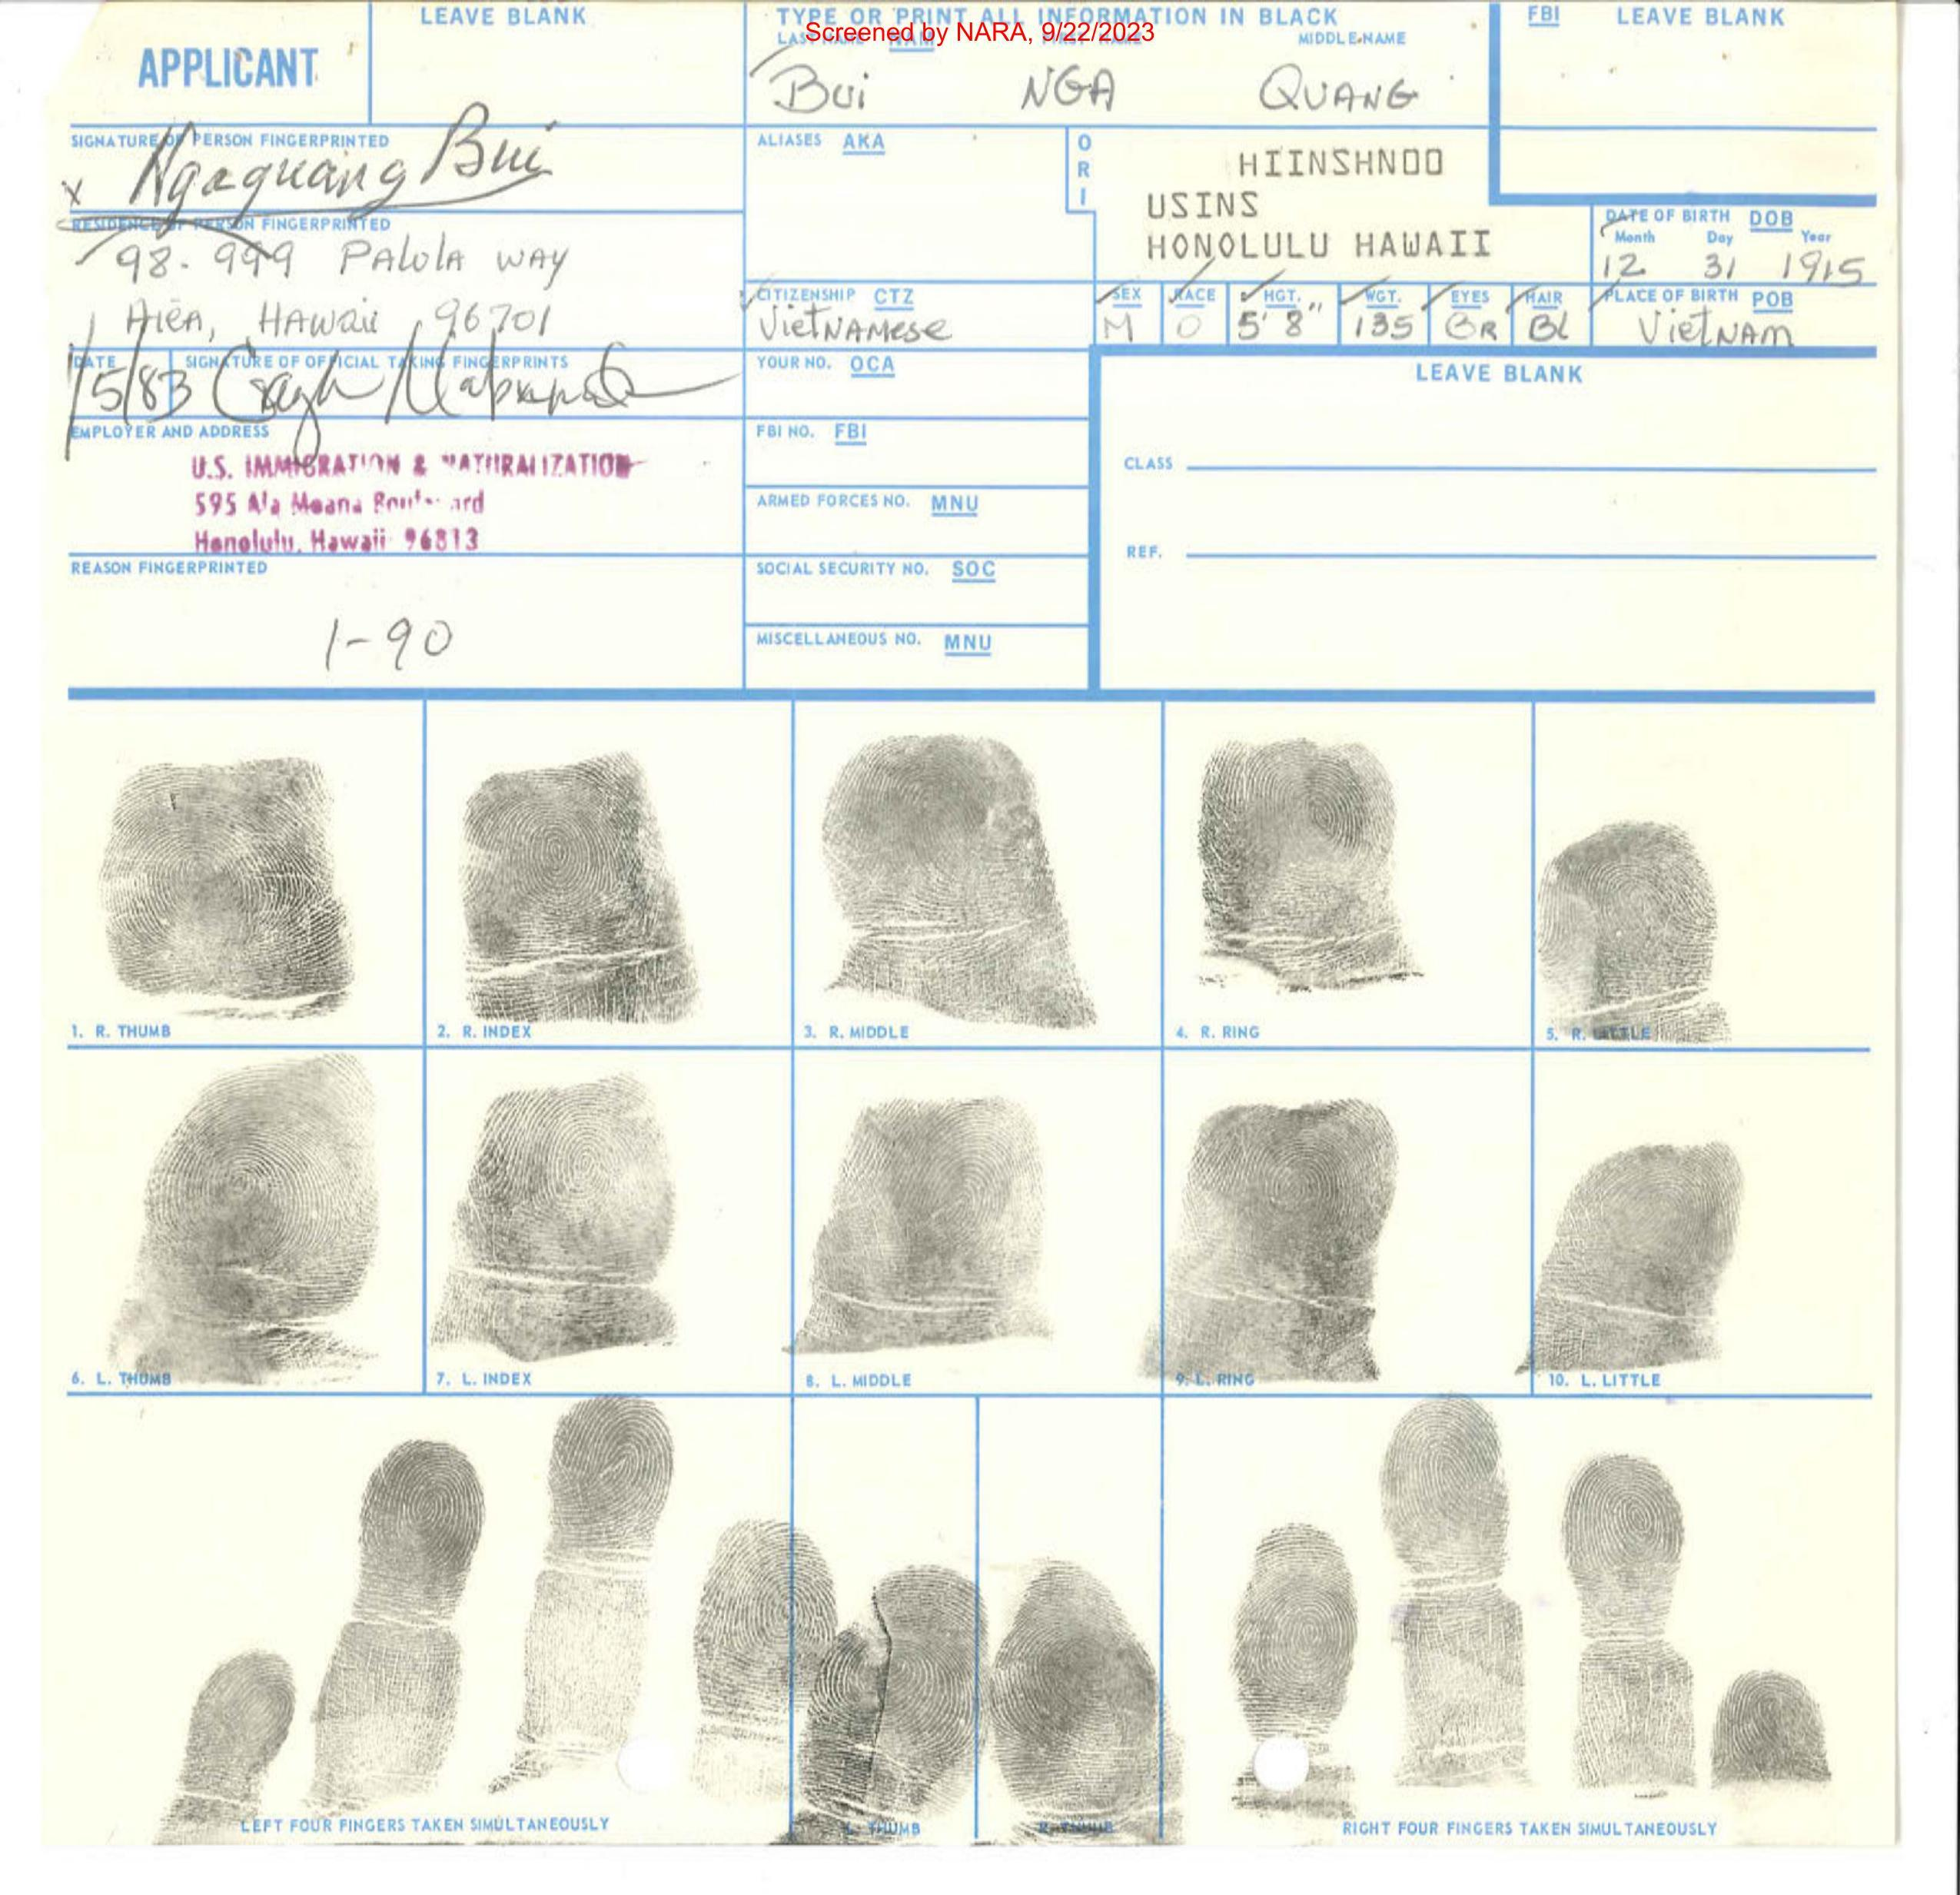 LEAVE BLANK
TYPE OR PRINT ALL INFORMATION IN BLACK
FBI LEAVE BLANK
Screened by NARA, 9/22/2023
LAST NAME NAM FIRST NAME MIDDLE NAME
APPLICANT
Bui NGA QUANG
SIGNATURE OF PERSON FINGERPRINTED
x Ngaquang Bui
ALIASES AKA
O
R
I
HIINSHN00
USINS
HONOLULU HAWAII
RESIDENCE OF PERSON FINGERPRINTED
98-999 PALULA WAY
AIEA, HAWAII 96701
DATE OF BIRTH DOB
Month Day Year
12 31 1915
CITIZENSHIP CTZ
VIETNAMESE
SEX RACE HGT. WGT. EYES HAIR PLACE OF BIRTH POB
M O 5' 8" 135 BR BL VIETNAM
DATE SIGNATURE OF OFFICIAL TAKING FINGERPRINTS
1/5/83
YOUR NO. OCA
LEAVE BLANK
EMPLOYER AND ADDRESS
U.S. IMMIGRATION & NATURALIZATION
595 Ala Moana Boulevard
Honolulu, Hawaii 96813
FBI NO. FBI
CLASS
ARMED FORCES NO. MNU
REF.
REASON FINGERPRINTED
1-90
SOCIAL SECURITY NO. SOC
MISCELLANEOUS NO. MNU
1. R. THUMB
2. R. INDEX
3. R. MIDDLE
4. R. RING
5. R. LITTLE
6. L. THUMB
7. L. INDEX
8. L. MIDDLE
9. L. RING
10. L. LITTLE
LEFT FOUR FINGERS TAKEN SIMULTANEOUSLY
L. THUMB
R. THUMB
RIGHT FOUR FINGERS TAKEN SIMULTANEOUSLY